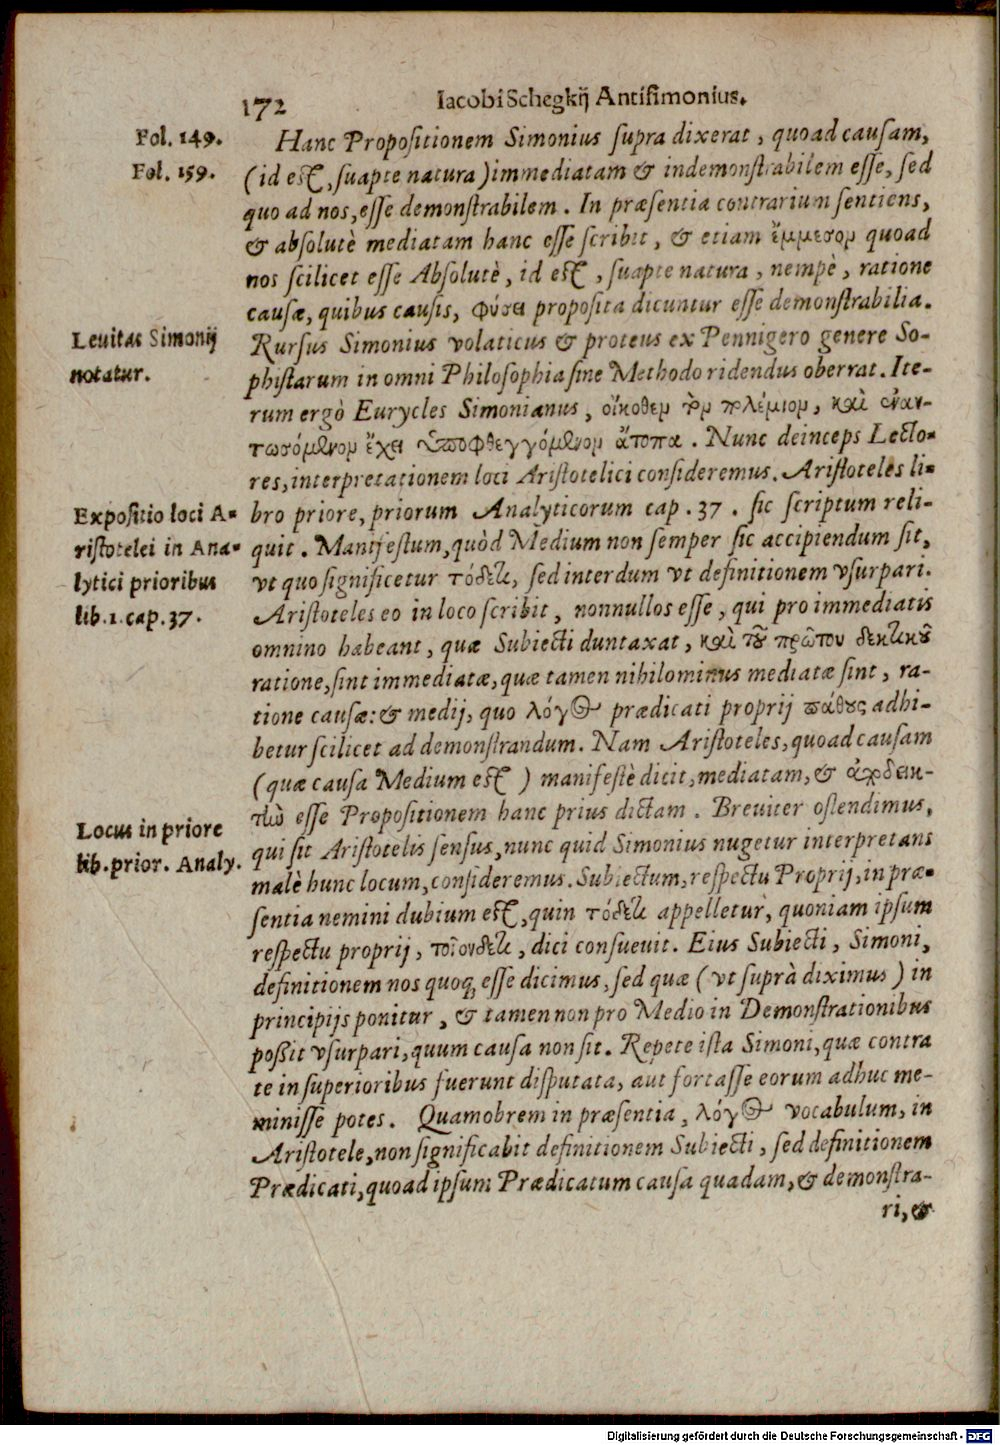 172
Iacobi Schegkij Antisimonius.
Fol. 149.
Fol. 159.
Hanc Propositionem Simonius supra dixerat, quoad causam,
(id est, suapte natura) immediatam & indemonstrabilem esse, sed
quo ad nos, esse demonstrabilem. In præsentia contrarium sentiens,
& absolutè mediatam hanc esse scribit, & etiam ἔμμεσον quoad
nos scilicet esse Absolutè, id est, suapte natura, nempè, ratione
causæ, quibus causis, φύσει proposita dicuntur esse demonstrabilia.
Leuitas Simonij
notatur.
Rursus Simonius volaticus & proteus ex Pennigero genere So-
phistarum in omni Philosophia sine Methodo ridendus oberrat. Ite-
rum ergò Eurycles Simonianus, οἴκοθεν τὸν πολέμιον, καὶ ἐναν-
τωσόμενον ἔχει ὑποφθεγγόμενον ἄτοπα. Nunc deinceps Lecto-
res, interpretationem loci Aristotelici consideremus. Aristoteles li-
Expositio loci A-
ristotelei in Ana-
lytici prioribus
lib. 1. cap. 37.
bro priore, priorum Analyticorum cap. 37. sic scriptum reli-
quit. Manifestum, quòd Medium non semper sic accipiendum sit,
vt quo significetur τόδε τι, sed interdum vt definitionem vsurpari.
Aristoteles eo in loco scribit, nonnullos esse, qui pro immediatis
omnino habeant, quæ Subiecti duntaxat, καὶ τοῦ πρῶτου δεκτικοῦ
ratione, sint immediatæ, quæ tamen nihilominus mediatæ sint, ra-
tione causæ: & medij, quo λόγος prædicati proprij πάθους adhi-
betur scilicet ad demonstrandum. Nam Aristoteles, quoad causam
(quæ causa Medium est) manifestè dicit, mediatam, & ἀποδεικ-
τὴν esse Propositionem hanc prius dictam. Breuiter ostendimus,
Locus in priore
lib. prior. Analy.
qui sit Aristotelis sensus, nunc quid Simonius nugetur interpretans
malè hunc locum, consideremus. Subiectum, respectu Proprij, in præ-
sentia nemini dubium est, quin τόδε τι appelletur, quoniam ipsum
respectu proprij, τοῖονδε τι, dici consueuit. Eius Subiecti, Simoni,
definitionem nos quoq; esse dicimus, sed quæ (vt suprà diximus) in
principijs ponitur, & tamen non pro Medio in Demonstrationibus
poßit vsurpari, quum causa non sit. Repete ista Simoni, quæ contra
te in superioribus fuerunt disputata, aut fortasse eorum adhuc me-
minisse potes. Quamobrem in præsentia, λόγος vocabulum, in
Aristotele, non significabit definitionem Subiecti, sed definitionem
Prædicati, quoad ipsum Prædicatum causa quadam, & demonstra-
ri, &
Digitalisierung gefördert durch die Deutsche Forschungsgemeinschaft - DFG